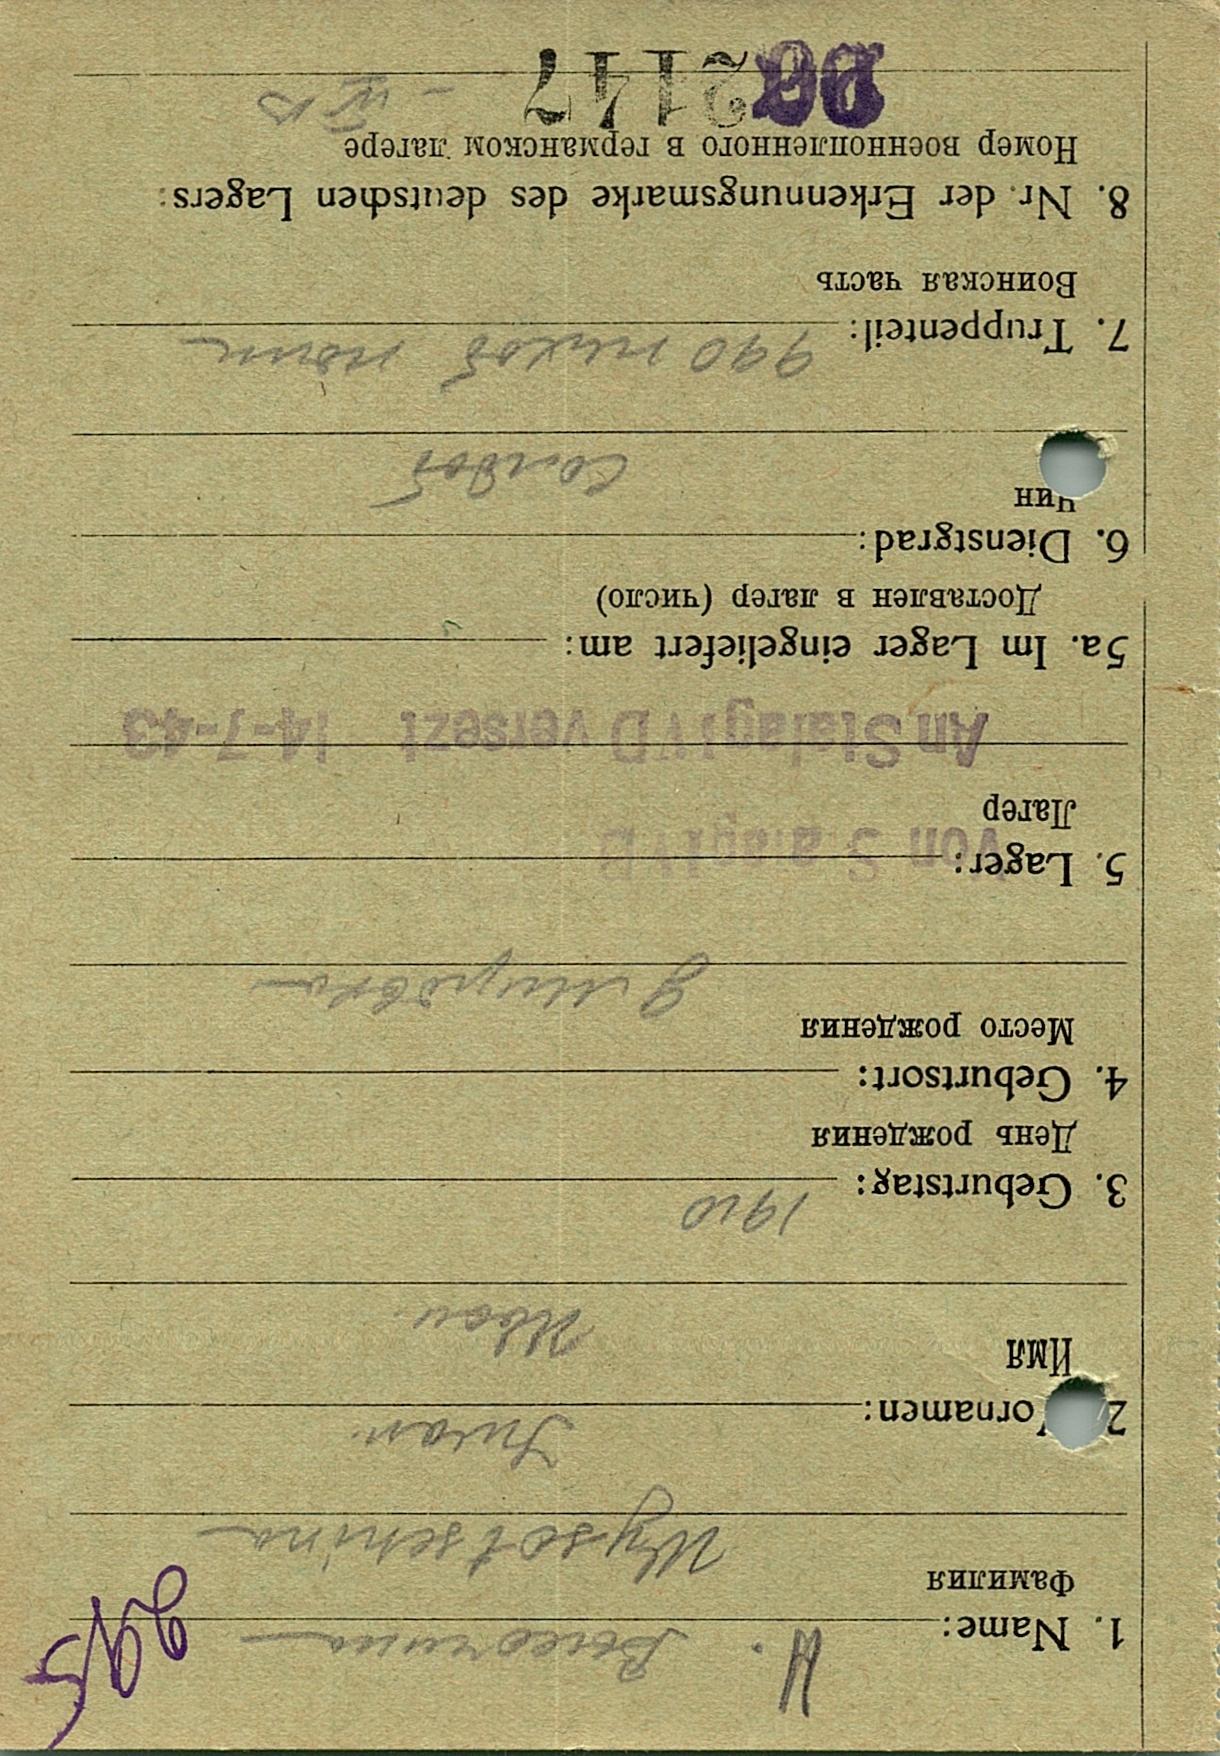 И. Высочина
1. Name:
Фамилия
Wysotschina
Iwan
2. Vornamen:
Имя
Иван
1910
3. Geburtstag:
День рождения
4. Geburtsort:
Место рождения
5. Lager:
Von Stalag IV D
Лагер
An Stalag IV D versezt 14-7-43
5a. Im Lager eingeliefert am:
Доставлен в лагер (число)
6. Dienstgrad:
Чин
солдат
7. Truppenteil: 990 пихот полк
Воинская часть
8. Nr. der Erkennungsmarke des deutschen Lagers:
Номер военнопленного в германском лагере
2147 - IV B